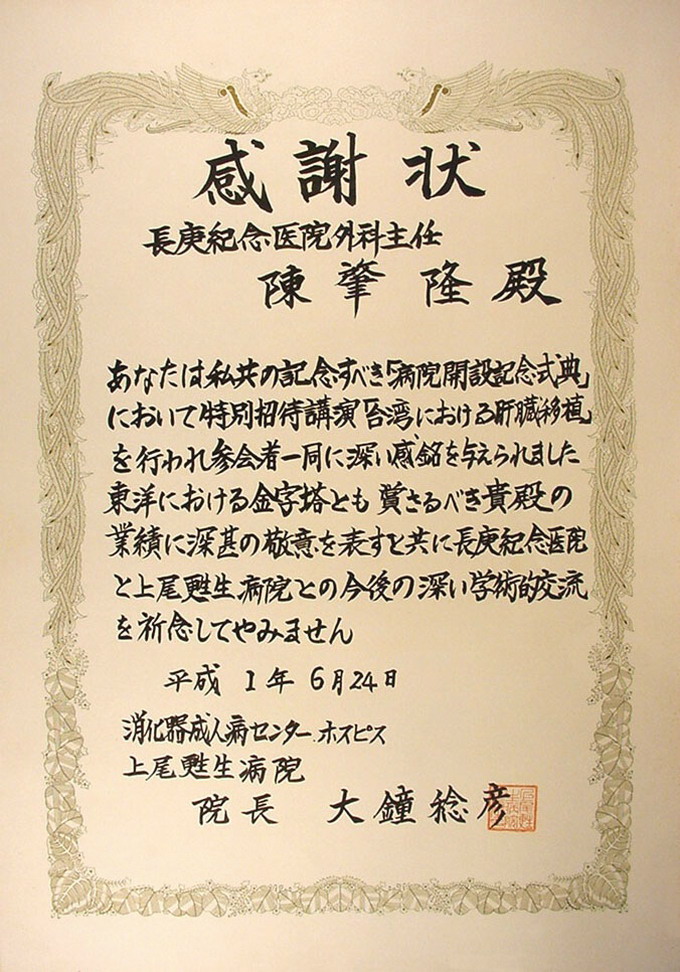 感謝状
長庚紀念医院外科主任
陳肇隆殿
あなたは私共の記念すべき「病院開設記念式典」
において特別招待講演「台湾における肝臓移植」
を行われ参会者一同に深い感銘を与えられました
東洋における金字塔とも賞さるべき貴殿の
業績に深甚の敬意を表すと共に長庚紀念医院
と上尾甦生病院との今後の深い学術的交流
を祈念してやみません
平成1年6月24日
消化器成人病センター.ホスピス
上尾甦生病院
院長 大鐘稔彦